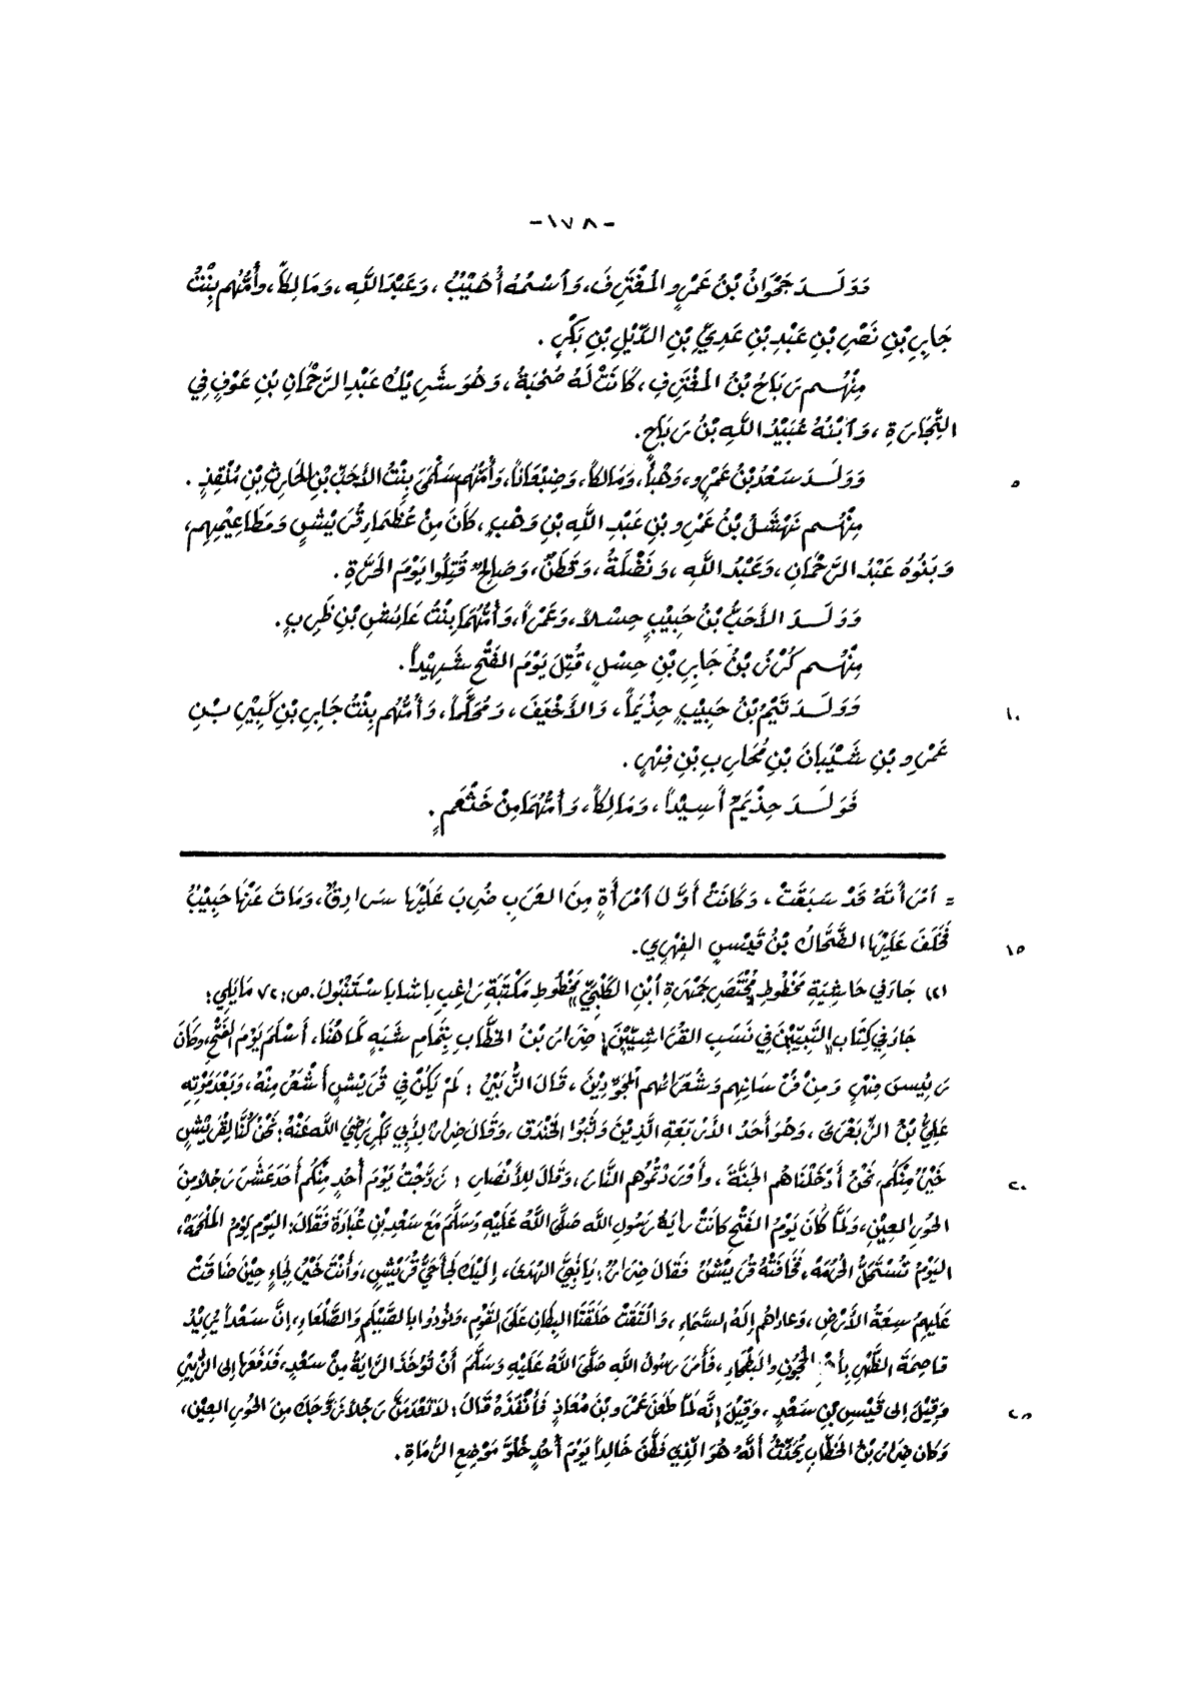 -١٧٨-
وَوَلَدَ جَحْوَانُ بْنُ عَمْرٍو المُغْتَرِفَ، وَاُسْمُهُ أُهَيْبُ، وَعَبْدَ اللَّهِ، وَمَالِكاً، وأُمُّهُم بِنْتُ
جَابِرِ بْنِ نَصْرِ بْنِ عَبْدِ بْنِ عَدِيِّ بْنِ الدِّيْلِ بْنِ بَكْرٍ.
مِنْهُم رَبَاحُ بْنُ المُغْتَرِفِ، كَانَتْ لَهُ صُحْبَةُ، وَهُوَ شَرِيْكُ عَبْدِ الرَّحْمَانِ بْنِ عَوْفٍ فِي
التِّجَارَةِ، وَاَبْنُهُ عُبَيْدُ اللَّهِ بْنُ رَبَاحٍ.
وَوَلَدَ سَعْدُ بْنُ عَمْرٍو، وَهْباً، وَمَالِكاً، وَضِبْعَاناً، وَأُمُّهُم سَلْمَى بِنْتُ الأَحَبِّ بْنِ الحَارِثِ بْنِ مُنْقِذٍ. ٥
مِنْهُم نَهْشَلُ بْنُ عَمْرِو بْنِ عَبْدِ اللَّهِ بْنِ وَهْبٍ، كَانَ مِنْ عُظَمَاءِ قُرَيْشٍ وَمَطَاعِيْمِهِم،
وَبَنُوهُ عَبْدُ الرَّحْمَانِ، وَعَبْدُ اللَّهِ، وَنَضْلَةُ، وَقَطَنٌ، وَصَالِحٌ قُتِلُوا يَوْمَ الحَرَّةِ.
وَوَلَدَ الأَحَبُّ بْنُ حَبِيْبٍ حِسْلاً، وَعَمْراً، وَأُمُّهُمَا بِنْتُ عَائِشِ بْنِ ظَرِبٍ.
مِنْهُم كُرْزُ بْنُ جَابِرِ بْنِ حِسْلٍ، قُتِلَ يَوْمَ الفَتْحِ شَهِيْداً.
وَوَلَدَ تَيْمُ بْنُ حَبِيْبٍ حِذْيَماً، وَالأَخْيَفَ، وَمُحَلَّماً، وَأُمُّهُم بِنْتُ جَابِرِ بْنِ كَبِيْرِ بْنِ ١٠
عَمْرِو بْنِ شَيْبَانَ بْنِ مُحَارِبِ بْنِ فِهْرٍ.
فَوَلَدَ حِذْيَمٌ أَسِيْداً، وَمَالِكاً، وَأُمُّهُمَا مِنْ خَثْعَمٍ.
= اَمْرَأَتَهُ قَدْ سَبَقَتْ، وَكَانَتْ أَوَّلَ اَمْرَأَةٍ مِنَ العَرَبِ ضُرِبَ عَلَيْهَا سَرَادِقٌ، وَمَاتَ عَنْهَا حَبِيْبُ
فَخَلَفَ عَلَيْهَا الضَّحَّاكُ بْنُ قَيْسٍ الفِهْرِي. ١٥
(٢) جَاءَ فِي حَاشِيَةِ مَخْطُوطِ مُخْتَصَرِ جَمْهَرَةِ اُبْنِ الكَلْبِيِّ مَخْطُوطِ مَكْتَبَةِ رَاغِبِ بِاشَا بِاسْتَنْبُولَ. ص: ٧٢ مَايَلِي:
جَاءَ فِي كِتَابِ التَّبِيِّيْنَ فِي نَسَبِ القُرَاشِيِّيْنَ: ضِرَارُ بْنُ الخَطَّابِ بِتَمَامِ شَبَهٍ لَمَا هُنَا، أَسْلَمَ يَوْمَ الفَتْحِ، وَكَانَ
رَئِيسَ فِهْرٍ وَمِنْ فُرْسَانِهِم وَشُعَرَائِهِم المُجَوِّدِيْنَ، قَالَ الزُّبَيْرُ: لَمْ يَكُنْ فِي قُرَيْشٍ أَشْعَرُ مِنْهُ، وَبَعْدَ مَوْتِهِ
عَلِيُّ بْنُ الزِّبَعْرَى، وَهُوَ أَحَدُ الأَرْبَعَةِ الَّذِيْنَ وَثَبُوا الخَنْدَقَ، وَقَالَ ضِرَارٌ لِأَبِي بَكْرٍ رَضِيَ اللَّه عَنْهُ: نَحْنُ كُنَّا لِقُرَيْشٍ
خَيْرٌ مِنْكُم، نَحْنُ أَدْخَلْنَاهُم الجَنَّةَ، وأَوْرَدْتُمُوهُم النَّارَ، وَقَالَ لِلأَنْصَارِ: زَوَّجْتُ يَوْمَ أُحُدٍ مِنْكُم أَحَدَ عَشَرَ رَجُلاً مِنَ ٢٠
الحُورِ العِيْنِ، وَلَمَّا كَانَ يَوْمُ الفَتْحِ كَانَتْ رايَةُ رَسُولِ اللَّهِ صَلَّى اللَّهُ عَلَيْهِ وَسَلَّمَ مَعَ سَعْدِ بْنِ عُبَادَةَ فَقَالَ: اليَوْمُ يَوْمُ المَلْحَمَة،
اليَوْمُ تُسْتَحَلُّ الحُرْمَةُ، فَخَافَتْهُ قُرَيْشٌ فَقَالَ ضِرَارٌ: يَا نَبِيَّ الهُدَى، إِلَيْكَ لَجَأَ حَيُّ قُرَيْشٍ، وَأَنْتَ خَيْرُ لَجَاءٍ حِيْنَ ضَاقَتْ
عَلَيهِمُ سِعَةُ الأَرْضِ، وَعَادَاهُم إِلَهُ السَّمَاءِ، وَالْتَقَتْ حَلَقَتَا البِطَانِ عَلَى القَوْمِ، وَنُودُوا بالصَّيْلَمِ والصَّلْعَاءِ، إِنَّ سَعْداً يُرِيْدُ
قاصِمَةَ الظَّهْرِ بِأَهْلِ الحُجُونِ والبَطْحَاءِ، فَأَمَرَ رَسُولُ اللَّهِ صَلَّى اللَّهُ عَلَيْهِ وَسَلَّمَ أَنْ تُؤخَذَ الرَّايَةُ مِنْ سَعْدٍ، فَدَفَعَهَا إلى الزُّبَيْرِ
وَقِيْلَ إِلى قَيْسِ بْنِ سَعْدٍ، وَقِيْلَ إنَّه لَمَّا طَعَنَ عَمْرَو بْنَ مُعَاذٍ فَأَنْفَذَهُ قَالَ: لَاتَعْدَمَنَّ رَجُلاً زَوَّجَكَ مِنَ الحُورِ العِيْنِ، ٢٥
وَكَان ضِرَارُ بْنُ الخَطَّابِ يُحَدِّثُ أَنَّهُ هُوَ الَّذِي فَطَّنَ خَالِداً يَوْمَ أُحُدٍ خُلُوَّ مَوْضِعِ الرُّمَاةِ.